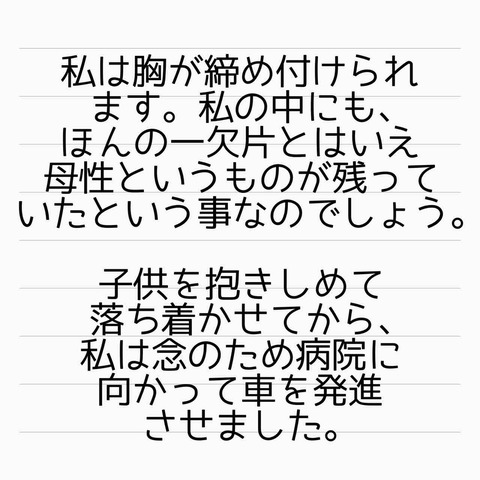 私は胸が締め付けられ
ます。私の中にも、
ほんの一欠片とはいえ
母性というものが残って
いたという事なのでしょう。
子供を抱きしめて
落ち着かせてから、
私は念のため病院に
向かって車を発進
させました。